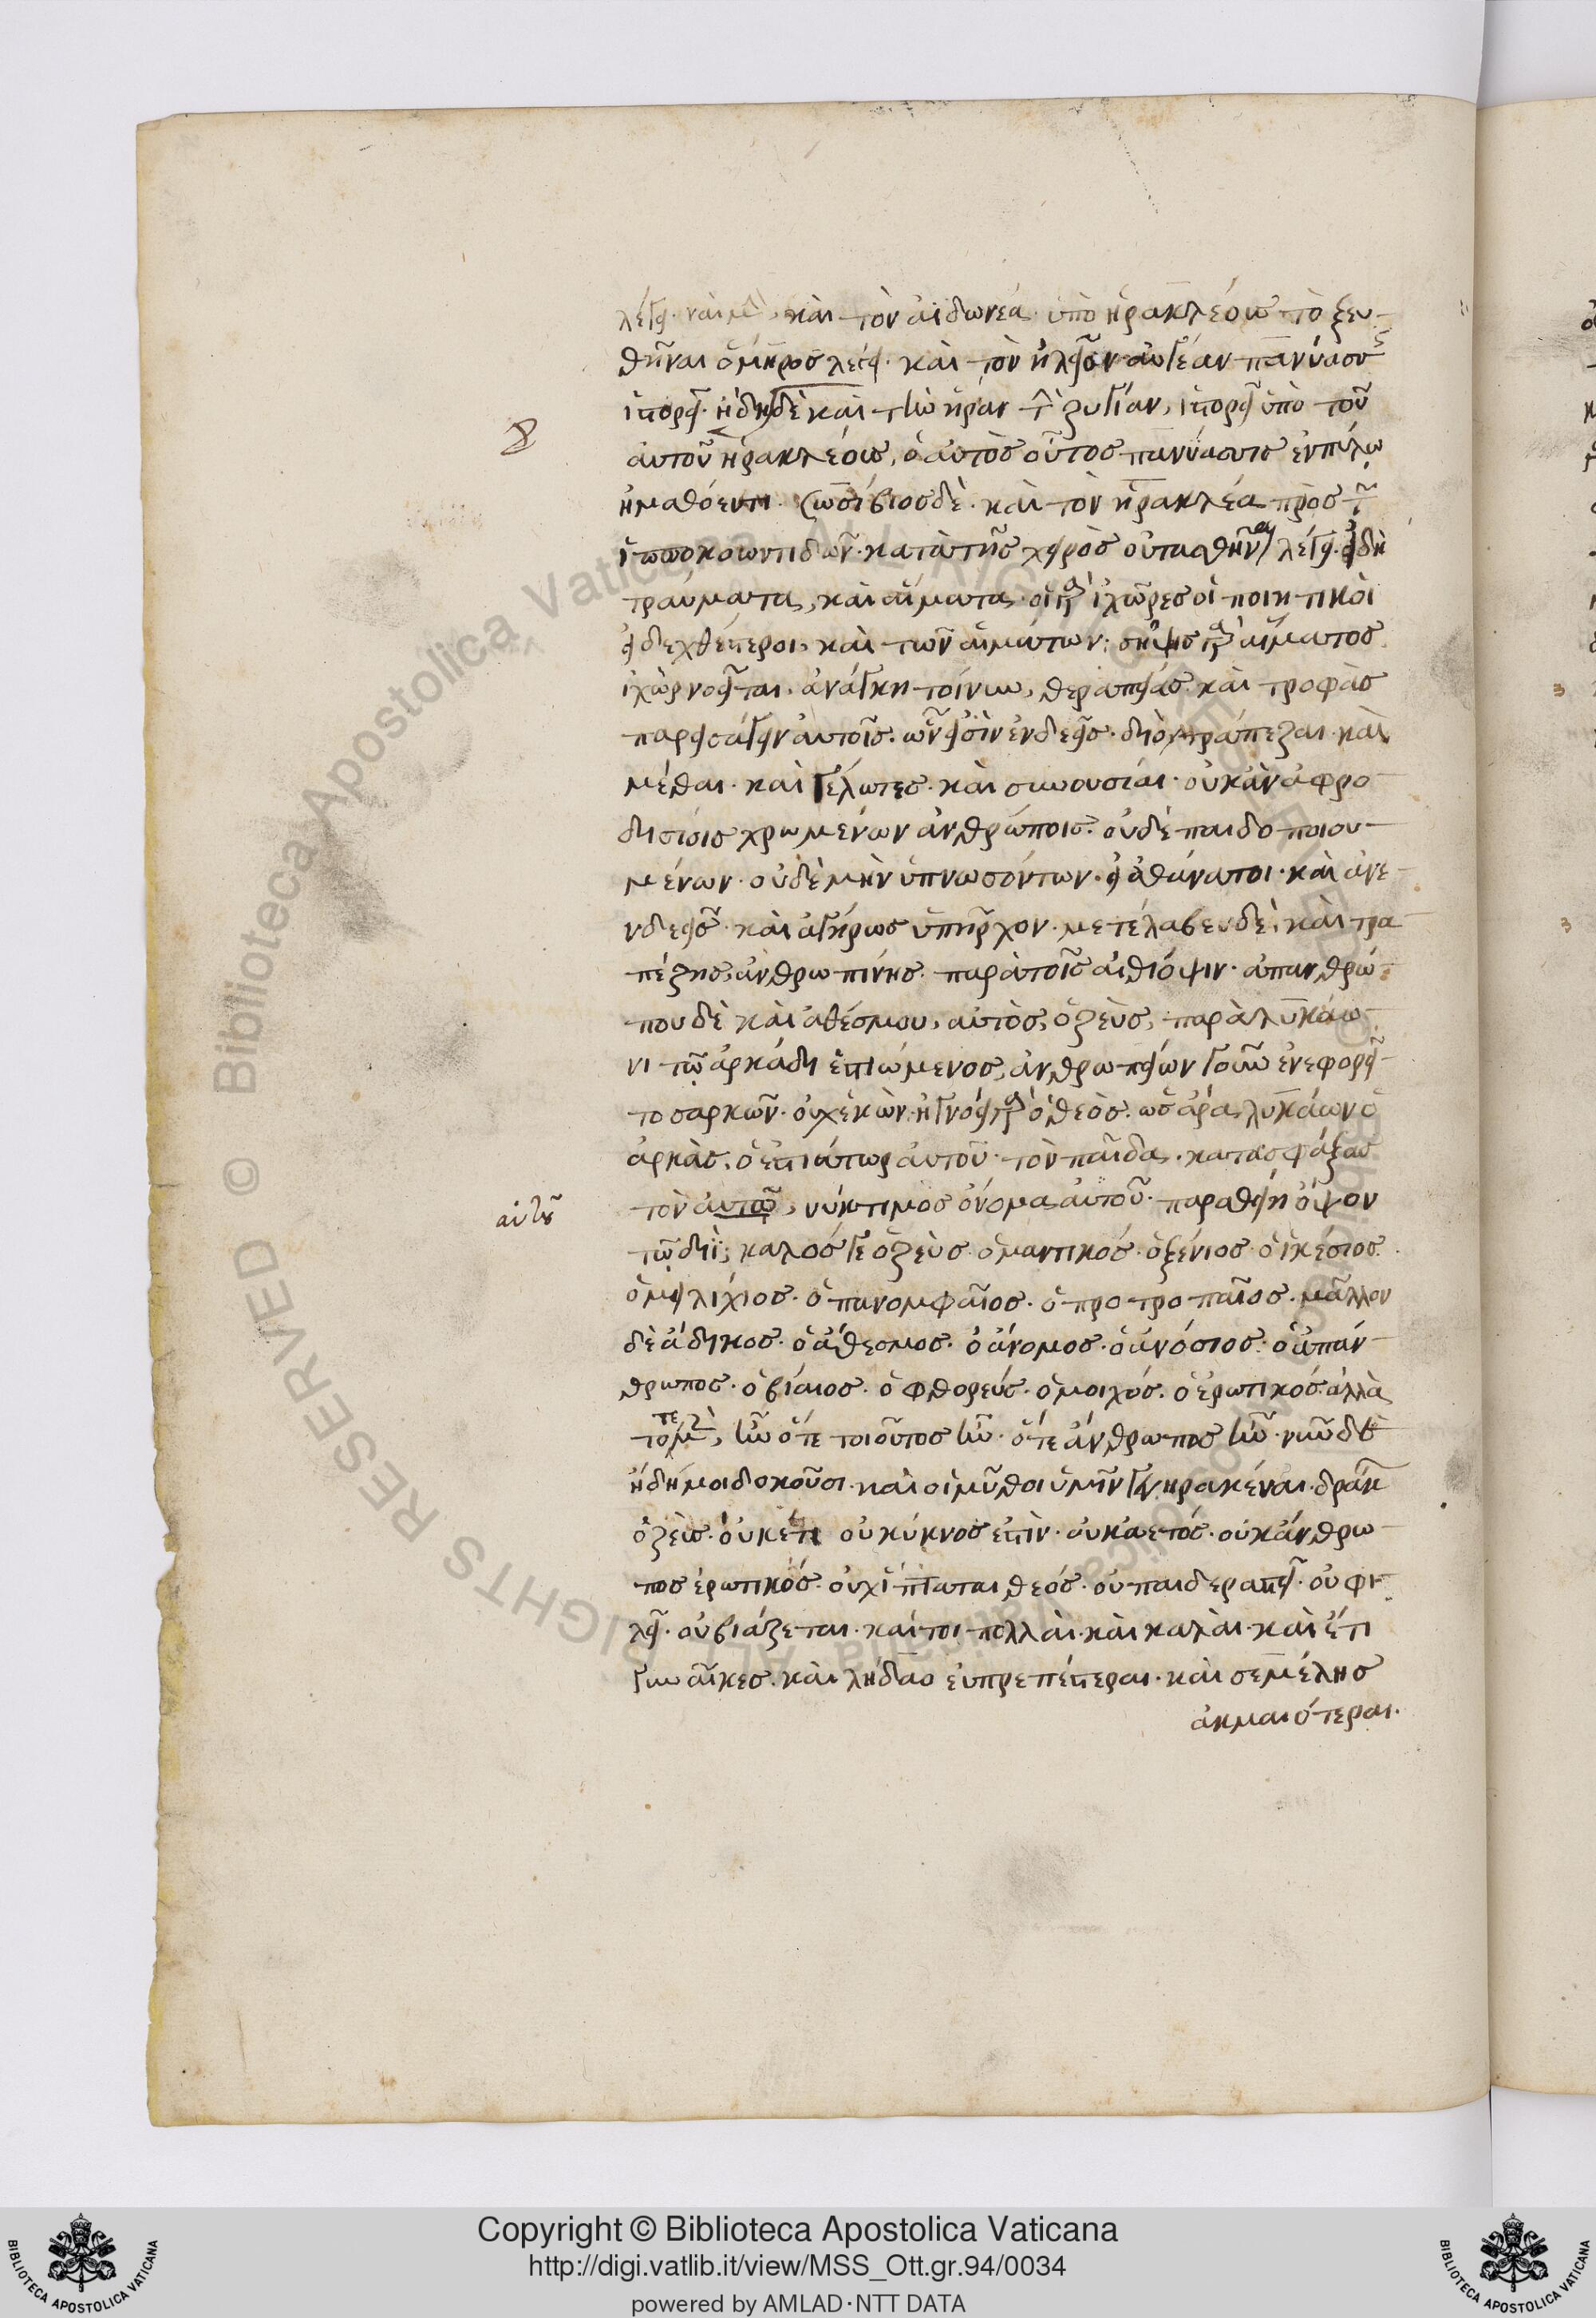 λέγει. ναὶ μὴν, καὶ τὸν ἀϊδωνέα ὑπὸ ἡρακλέους τοξευ-
θῆναι ὅμηρος λέγει. καὶ τὸν ἠλεῖον αὐγέαν πανύασις
ἱστορεῖ. ἤδη δὲ καὶ τὴν ἥραν τὴν ζυγίαν, ἱστορεῖ ὑπὸ τοῦ
αὐτοῦ ἡρακλέους, ὁ αὐτὸς οὗτος πανύασις ἐν πύλῳ
ἠμαθόεντι. σωσίβιος δὲ. καὶ τὸν ἡρακλέα πρὸς τῶν
ἱπποκοωντιδῶν. κατὰ τῆς χειρὸς οὐτασθῆναι λέγει. εἰ δὴ
τραύματα, καὶ αἵματα. οἱ γὰρ ἰχῶρες οἱ ποιητικοὶ
εἰδεχθέστεροι, καὶ τῶν αἱμάτων. σῆψις γὰρ αἵματος
ἰχὼρ νοεῖται. ἀνάγκη τοίνυν, θεραπείας καὶ τροφὰς
παρεισάγειν αὐτοῖς. ὧν εἰσὶν ἐνδεεῖς. διὸ τράπεζαι. καὶ
μέθαι. καὶ γέλωτες. καὶ συνουσίαι. οὐκ ἂν ἀφρο-
δισίοις χρωμένων ἀνθρώποις. οὐδὲ παιδοποιου-
μένων. οὐδὲ μὴν ὑπνωσόντων. εἰ ἀθάνατοι. καὶ ἀνε-
νδεεῖς. καὶ ἀγήρως ὑπῆρχον. μετέλαβεν δὲ καὶ τρα-
πέζης ἀνθρωπίνης. παρὰ τοῖς αἰθίοψιν. ἀπανθρώ-
που δὲ καὶ ἀθέσμου, αὐτὸς, ὁ ζεὺς, παρὰ λυκάω-
νι τῷ ἀρκάδι ἑστιώμενος, ἀνθρωπείων γοῦν ἐνεφορεῖ-
το σαρκῶν. οὐχ ἑκὼν. ἠγνόει γὰρ ὁ θεὸς. ὡς ἄρα, λυκάων ὁ
ἀρκὰς, ὁ ἑστιάτωρ αὐτοῦ. τὸν παῖδα. κατασφάξας
τὸν αὐτῷ, νύκτιμος ὄνομα αὐτοῦ. παραθείη ὄψον
αὑτοῦ
τῷ διΐ; καλός γε ὁ ζεὺς. ὁ μαντικός. ὁ ξένιος. ὁ ἱκέσιος.
ὁ μειλίχιος. ὁ πανομφαῖος. ὁ προτροπαῖος. μᾶλλον
δὲ ἄδικος. ὁ ἄθεσμος. ὁ ἄνομος. ὁ ἀνόσιος. ὁ ἀπάν-
θρωπος. ὁ βίαιος. ὁ φθορεύς. ὁ μοιχός. ὁ ἐρωτικός. ἀλλὰ
τότε μὲν, ἦν ὅτε τοιοῦτος ἦν. ὅτε ἄνθρωπος ἦν. νῦν δὲ
ἤδη μοι δοκοῦσι. καὶ οἱ μῦθοι ὑμῖν γεγηρακέναι. δράκων
ὁ ζεὺς. οὐκέτι οὐ κύκνος ἐστὶν. οὐκ ἀετός. οὐκ ἄνθρω-
πος ἐρωτικός. οὐχ ἵπταται θεός. οὐ παιδεραστεῖ. οὐ φι-
λεῖ. οὐ βιάζεται. καίτοι πολλαὶ. καὶ καλαὶ. καὶ ἔτι
γυναῖκες. καὶ λήδας εὐπρεπέστεραι. καὶ σεμέλης
ἀκμαιότεραι.
Copyright © Biblioteca Apostolica Vaticana
http://digi.vatlib.it/view/MSS_Ott.gr.94/0034
powered by AMLAD·NTT DATA